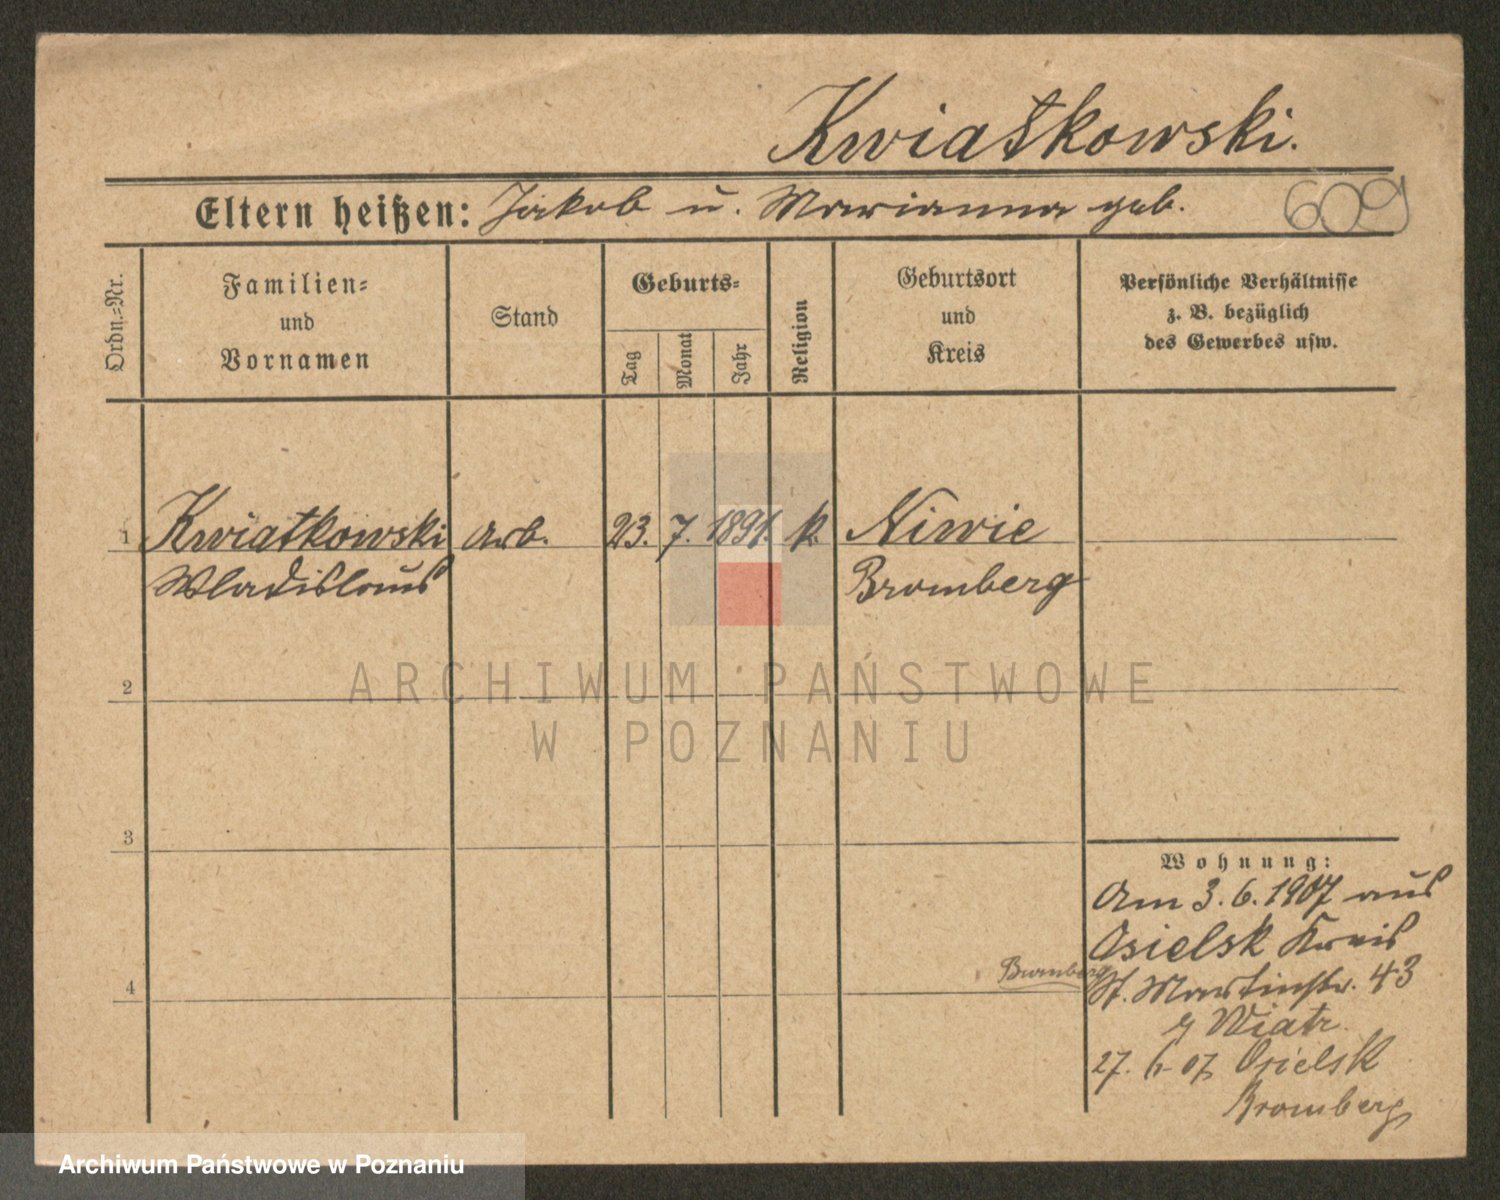 Kwiatkowski.
Eltern heißen: Jakob u. Marianna geb.
609
Ordn.-Nr.
Familien-
und
Vornamen
Stand
Geburts-
Tag
Monat
Jahr
Religion
Geburtsort
und
Kreis
Persönliche Verhältnisse
z. B. bezüglich
des Gewerbes usw.
1 Kwiatkowski Arb. 23. 7. 1891. k. Niwie
Wladislaus Bromberg
2
3
4
Wohnung:
Am 3. 6. 1907 aus
Osielsk Kreis
Bromberg
St. Martinstr. 43
Wiatr
27. 6. 07 Osielsk
Bromberg
ARCHIWUM PAŃSTWOWE
W POZNANIU
Archiwum Państwowe w Poznaniu